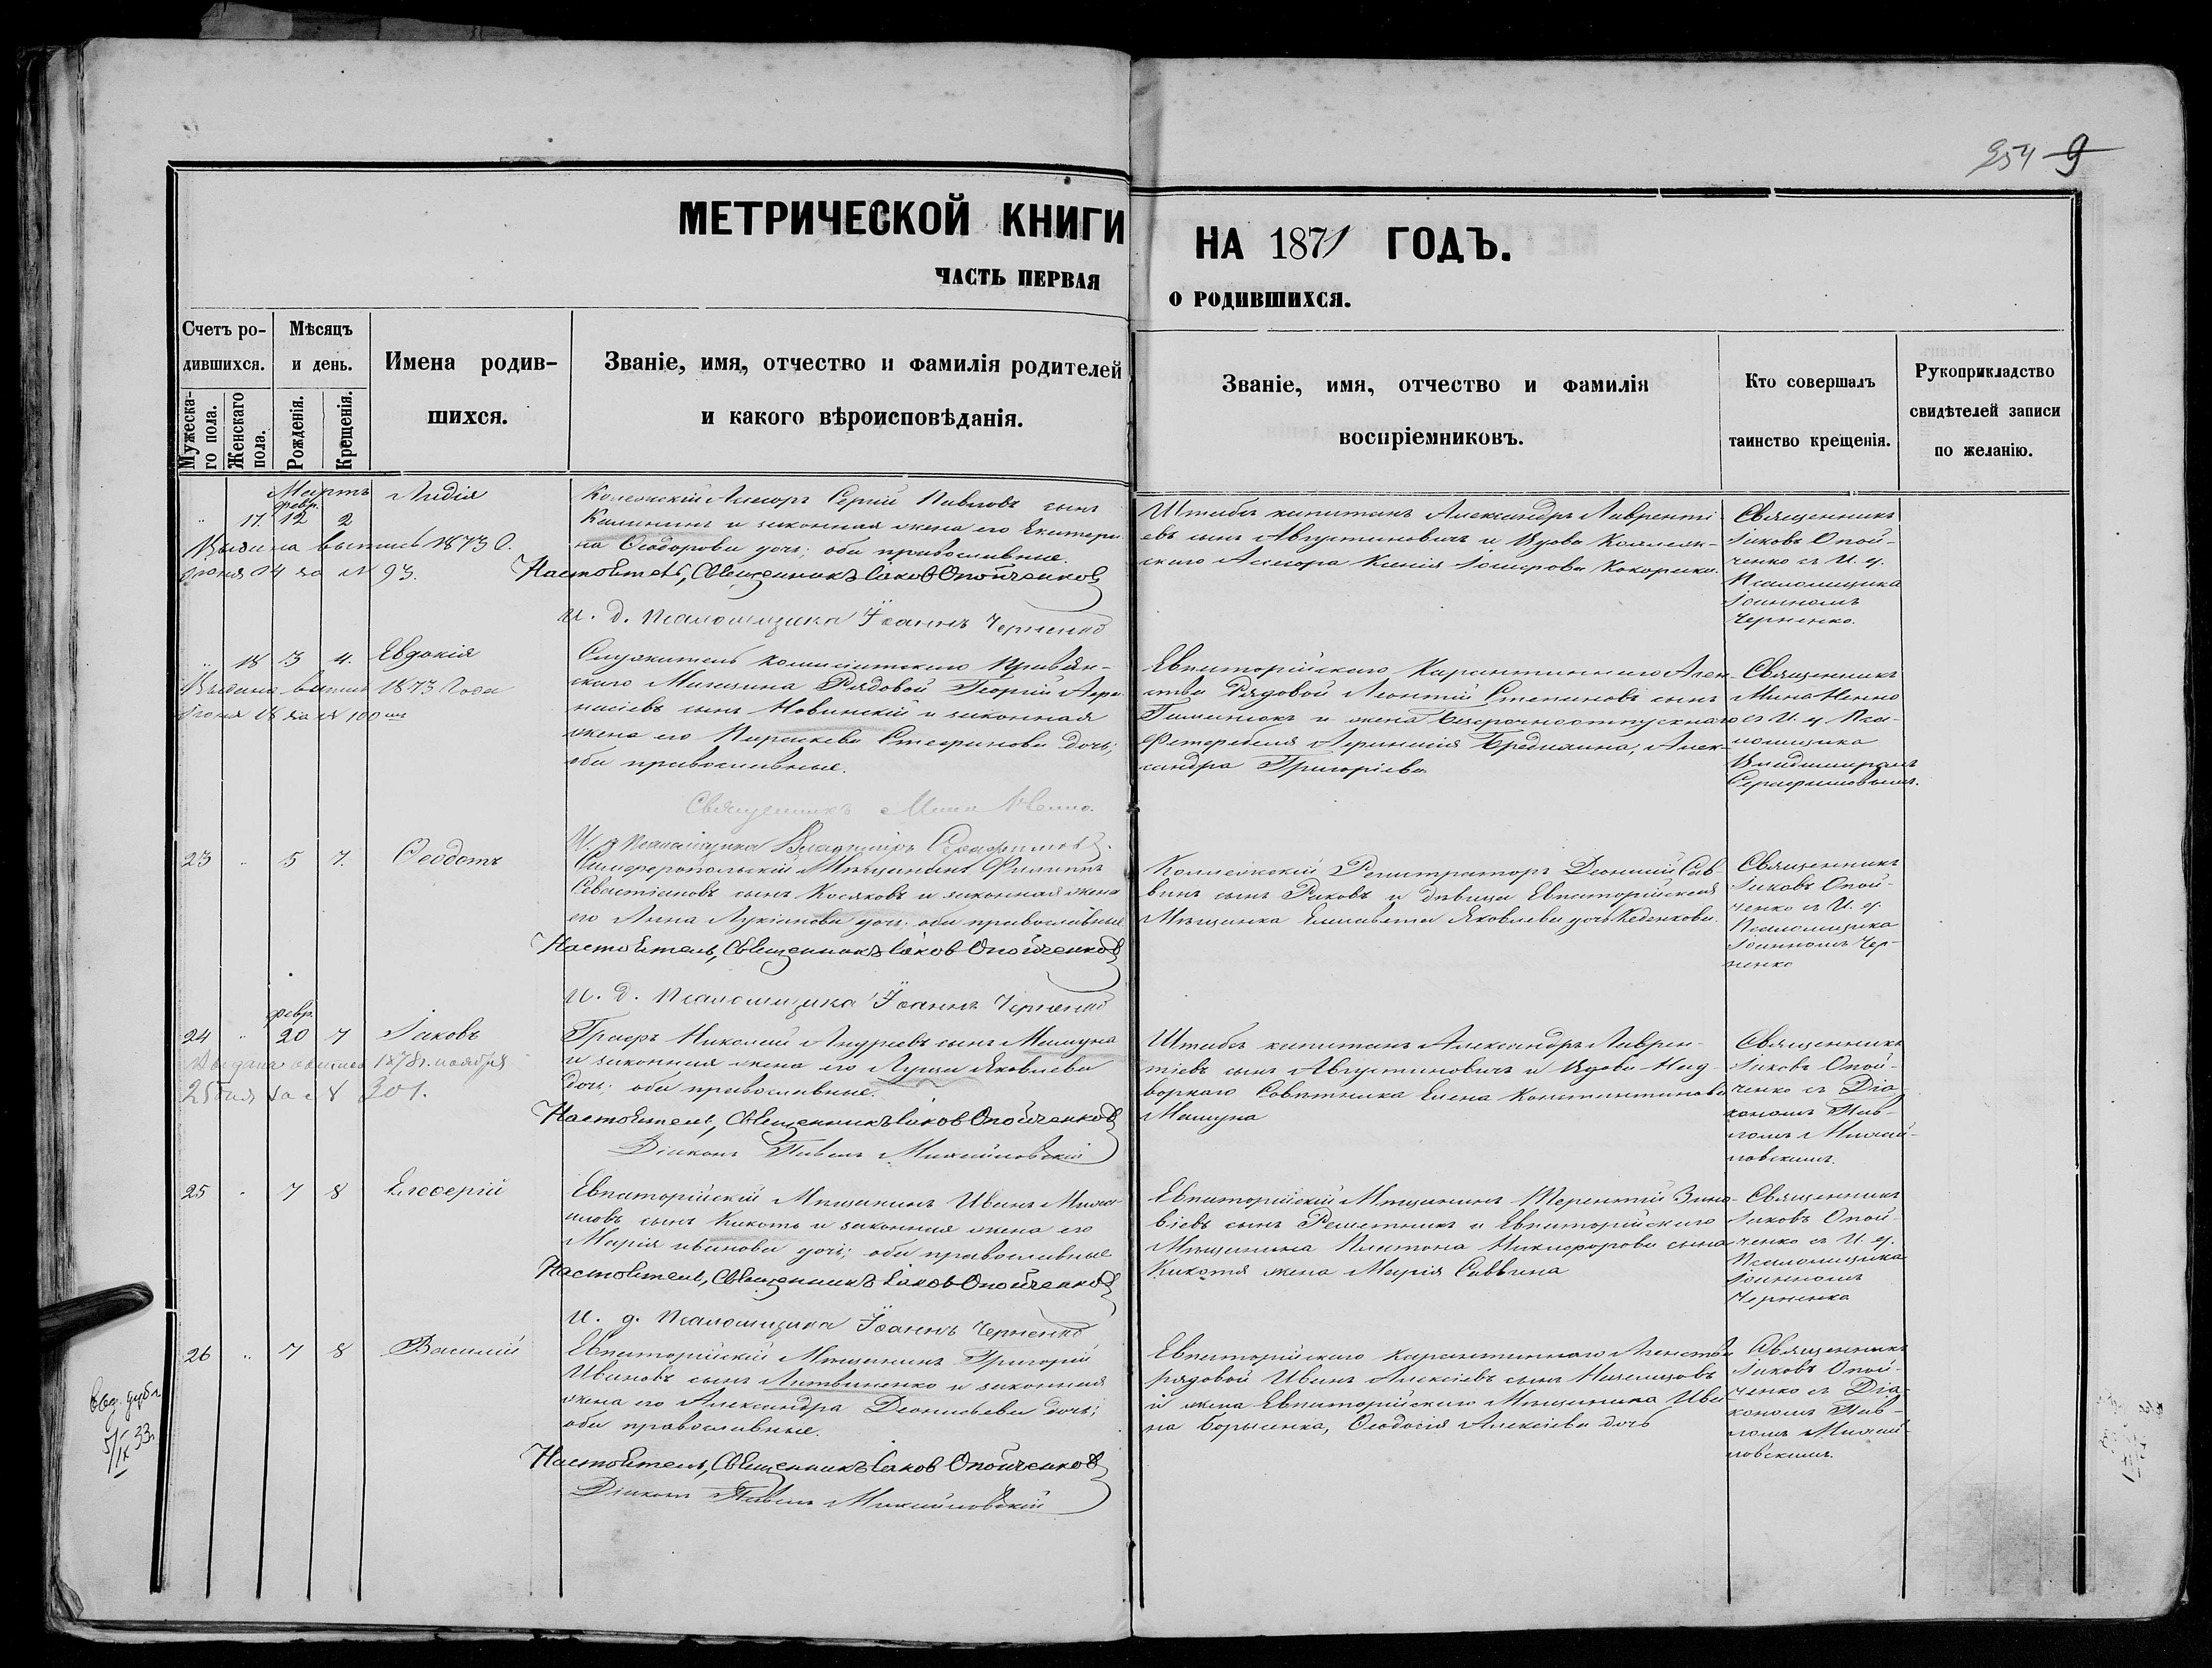 254 9
МЕТРИЧЕСКОЙ КНИГИ НА 1871 ГОДЪ.
ЧАСТЬ ПЕРВАЯ О РОДИВШИХСЯ.
Счетъ родившихся.
Мужескаго пола.
Женскаго пола.
Мѣсяцъ и день.
Рожденія.
Крещенія.
Имена родившихся.
Званіе, имя, отчество и фамилія родителей
и какого вѣроисповѣданія.
Званіе, имя, отчество и фамилія
воспріемниковъ.
Кто совершалъ
таинство крещенія.
Рукоприкладство
свидѣтелей записи
по желанію.
Мартъ
февр.
17. 12 2 Лидія
Выдана выпись 1873 г.
Іюня 14 за № 93.
Коллежскій Ассесоръ Сергій Павловъ сынъ
Калининъ и законная жена его Екатери-
на Ѳеодорова дочь; оба православные.
Настоятель, Священникъ Іаковъ Опойченковъ
И. д. Псаломщика Іоаннъ Черненко
Штабсъ капитанъ Александръ Лавренті-
евъ сынъ Августиновичъ и Вдова Коллеж-
скаго Ассесора Ксенія
Священникъ
Іаковъ Опой-
ченко съ И. д.
Псаломщика
Іоанномъ
Черненко.
18 3 4. Евдокія
Выдана выпись 1873 года
Іюня 18 за № 100
Служитель Коммисіатскаго Провіан-
скаго Магазина Рядовой Георгій Аѳа-
насіевъ сынъ Новинскій и законная
жена его Параскева Стефанова дочь;
оба православные.
Священникъ Мина Ненно.
И. д. Псаломщика Владиміръ Серафимовъ.
Евпаторійскаго Карантиннаго Аген-
ства Рядовой Леонтій Степановъ сынъ
и жена безсрочноотпускнаго
Фетфебеля Аѳанасія Бредихина, Алек-
сандра Григоріева
Священникъ
Мина Ненно
съ И. д. Пса-
ломщика
Владиміромъ
Серафимовымъ.
23 5 7. Ѳеодотъ
Симферопольскій Мѣщанинъ Филиппъ
Севастіановъ сынъ Косяковъ и законная жена
его Анна Лукіанова дочь; оба православные
Настоятель, Священникъ Іаковъ Опойченковъ
И. д. Псаломщика Іоаннъ Черненко
Коллежскій Регистраторъ Діонисій Сав-
винъ сынъ Раковъ и дѣвица Евпаторійская
Мѣщанка Елисавета Яковлева дочь Кеденкова.
Священникъ
Іаковъ Опой-
ченко съ И. д.
Псаломщика
Іоанномъ Чер-
ненко
февр.
24 20 7 Іаковъ
Выдана выпись 1878 г. ноября
25 дня за № 301.
Графъ Николай Андреевъ сынъ Мамуна
и законная жена его Луша Яковлева
дочь; оба православные.
Настоятель, Священникъ Іаковъ Опойченковъ
Діаконъ Павелъ Михайловскій
Штабсъ капитанъ Александръ Лаврен-
тіевъ сынъ Августиновичъ и Вдова Над-
ворнаго Совѣтника Елена Константинова
Мамуна
Священникъ
Іаковъ Опой-
ченко съ Діа-
кономъ Пав-
ломъ Михай-
ловскимъ.
25 7 8 Елеѳерій
Евпаторійскій Мѣщанинъ Иванъ Михаи-
ловъ сынъ Кикоть и законная жена его
Марія Иванова дочь; оба православные
Настоятель, Священникъ Іаковъ Опойченковъ
И. д. Псаломщика Іоаннъ Черненко
Евпаторійскій Мѣщанинъ Терентій Зино-
віевъ сынъ Решетникъ и Евпаторійскаго
Мѣщанина Платона Никифорова сына
Кикотя жена Марія Саввина
Священникъ
Іаковъ Опой-
ченко съ И. д.
Псаломщика
Іоанномъ
Черненко
26 7 8 Василій
Евпаторійскій Мѣщанинъ Григорій
Ивановъ сынъ Литвиненко и законная
жена его Александра Діонисьева дочь;
оба православные.
Настоятель, Священникъ Іаковъ Опойченковъ
Діаконъ Павелъ Михайловскій
Евпаторійскаго Карантиннаго Агенства
рядовой Иванъ Алексіевъ сынъ
и жена Евпаторійскаго Мѣщанина Ива-
на Борысенка, Ѳеодосія Алексіева дочь
Священникъ
Іаковъ Опой-
ченко съ Діа-
кономъ Пав-
ломъ Михай-
ловскимъ.
выд. дубл.
5/IX 33